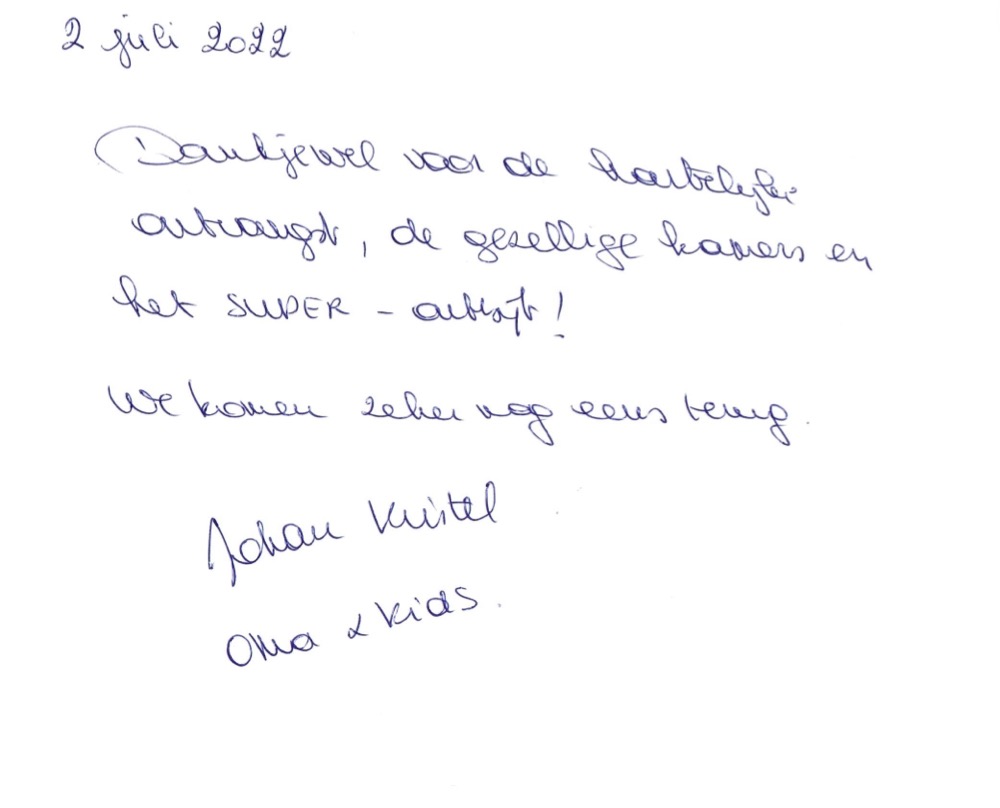 2 juli 2022
Dankjewel voor de hartelijke
ontvangst, de gezellige kamers en
het SUPER - ontbijt!
We komen zeker nog eens terug.
Johan Kristel
Oma & Kids.